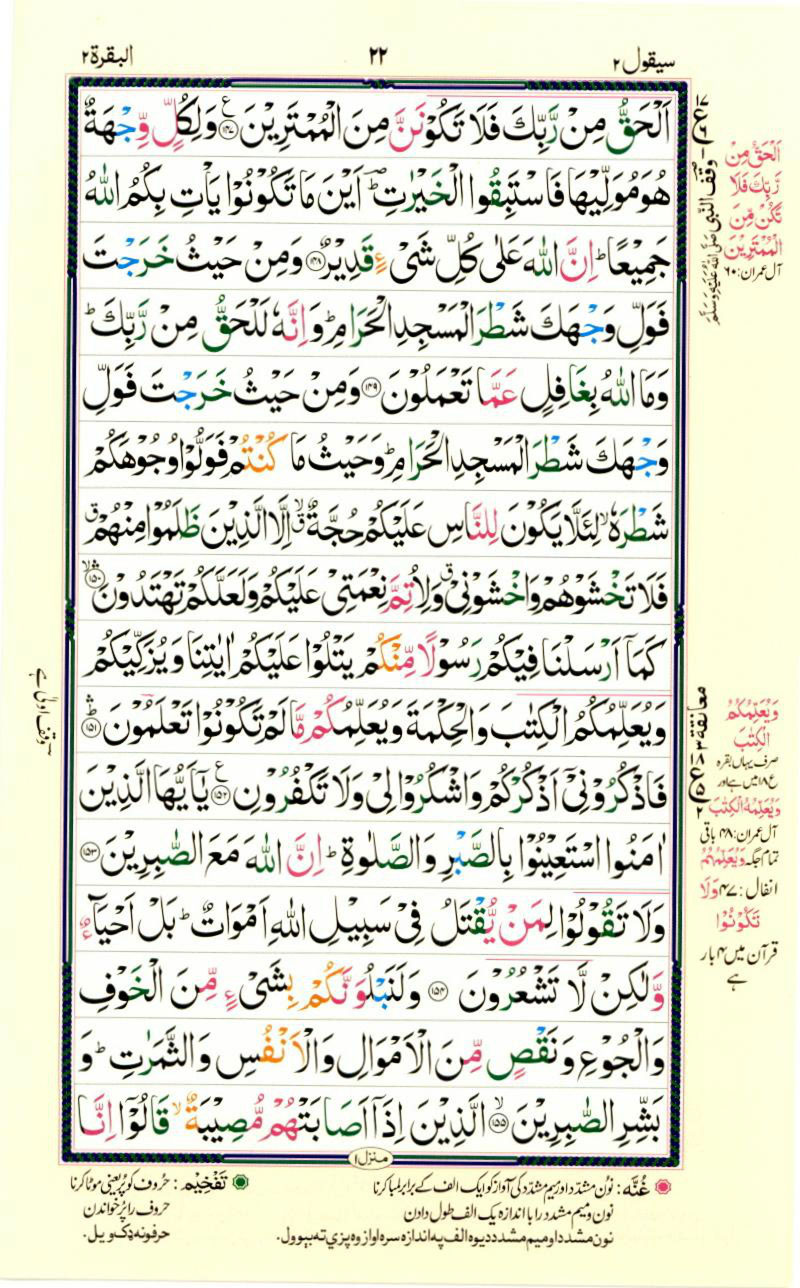 سیقول ۲
۲۲
البقرة ۲
اَلْحَقُّ مِنْ رَّبِّكَ فَلَا تَكُوْنَنَّ مِنَ الْمُمْتَرِیْنَ ﴿۱۴۷﴾ؑ وَلِكُلٍّ وِّجْهَةٌ
هُوَ مُوَلِّیْهَا فَاسْتَبِقُوا الْخَیْرٰتِ ؕ اَیْنَ مَا تَكُوْنُوْا یَاْتِ بِكُمُ اللّٰهُ
جَمِیْعًا ؕ اِنَّ اللّٰهَ عَلٰى كُلِّ شَیْءٍ قَدِیْرٌ ﴿۱۴۸﴾ وَمِنْ حَیْثُ خَرَجْتَ
فَوَلِّ وَجْهَكَ شَطْرَ الْمَسْجِدِ الْحَرَامِ ؕ وَاِنَّهٗ لَلْحَقُّ مِنْ رَّبِّكَ ؕ
وَمَا اللّٰهُ بِغَافِلٍ عَمَّا تَعْمَلُوْنَ ﴿۱۴۹﴾ وَمِنْ حَیْثُ خَرَجْتَ فَوَلِّ
وَجْهَكَ شَطْرَ الْمَسْجِدِ الْحَرَامِ ؕ وَحَیْثُ مَا كُنْتُمْ فَوَلُّوْا وُجُوْهَكُمْ
شَطْرَهٗ ۙ لِئَلَّا یَكُوْنَ لِلنَّاسِ عَلَیْكُمْ حُجَّةٌ ۙۗ اِلَّا الَّذِیْنَ ظَلَمُوْا مِنْهُمْ ۗ
فَلَا تَخْشَوْهُمْ وَاخْشَوْنِیْ ۗ وَلِاُتِمَّ نِعْمَتِیْ عَلَیْكُمْ وَلَعَلَّكُمْ تَهْتَدُوْنَ ﴿۱۵۰﴾ۙۛ
كَمَاۤ اَرْسَلْنَا فِیْكُمْ رَسُوْلًا مِّنْكُمْ یَتْلُوْا عَلَیْكُمْ اٰیٰتِنَا وَیُزَكِّیْكُمْ
وَیُعَلِّمُكُمُ الْكِتٰبَ وَالْحِكْمَةَ وَیُعَلِّمُكُمْ مَّا لَمْ تَكُوْنُوْا تَعْلَمُوْنَ ﴿۱۵۱﴾ؕۛ
فَاذْكُرُوْنِیْۤ اَذْكُرْكُمْ وَاشْكُرُوْا لِیْ وَلَا تَكْفُرُوْنِ ﴿۱۵۲﴾ؑ یٰۤاَیُّهَا الَّذِیْنَ
اٰمَنُوا اسْتَعِیْنُوْا بِالصَّبْرِ وَالصَّلٰوةِ ؕ اِنَّ اللّٰهَ مَعَ الصّٰبِرِیْنَ ﴿۱۵۳﴾
وَلَا تَقُوْلُوْا لِمَنْ یُّقْتَلُ فِیْ سَبِیْلِ اللّٰهِ اَمْوَاتٌ ؕ بَلْ اَحْیَآءٌ
وَّلٰكِنْ لَّا تَشْعُرُوْنَ ﴿۱۵۴﴾ وَلَنَبْلُوَنَّكُمْ بِشَیْءٍ مِّنَ الْخَوْفِ
وَالْجُوْعِ وَنَقْصٍ مِّنَ الْاَمْوَالِ وَالْاَنْفُسِ وَالثَّمَرٰتِ ؕ وَ
بَشِّرِ الصّٰبِرِیْنَ ﴿۱۵۵﴾ۙ الَّذِیْنَ اِذَاۤ اَصَابَتْهُمْ مُّصِیْبَةٌ ۙ قَالُوْۤا اِنَّا
منزل ۱
وقف النبی صلی اللہ علیہ وسلم
اَلْحَقُّ مِنْ
رَّبِّكَ فَلَا
تَكُنْ مِّنَ
الْمُمْتَرِیْنَ
آل عمران: ۶۰
معانقة ۳
وَیُعَلِّمُكُمُ
الْكِتٰبَ
صرف یہاں بقرہ
ع ۱۸ میں ہے اور
وَیُعَلِّمُهُ الْكِتٰبَ
آل عمران: ۴۸ باقی
تمام جگہ وَیُعَلِّمُهُمُ
انفال: ۴۷ وَلَا
تَكُوْنُوْا
قرآن میں ۴ بار
ہے
وقف اولیٰ ہے
غُنّه: نون مشدد اور میم مشدّد کی آواز کو ایک الف کے برابر لمبا کرنا
نون و میم مشدد را با اندازہ یک الف طول دادن
نون مشدد او میم مشدد دیوہ الف په اندازه سره اواز وہ پزې ته بېوول.
تَفْخِیْم: حروف کو پُر یعنی موٹا کرنا
حروف را پُر خواندن
حرفونه ډک ویل.